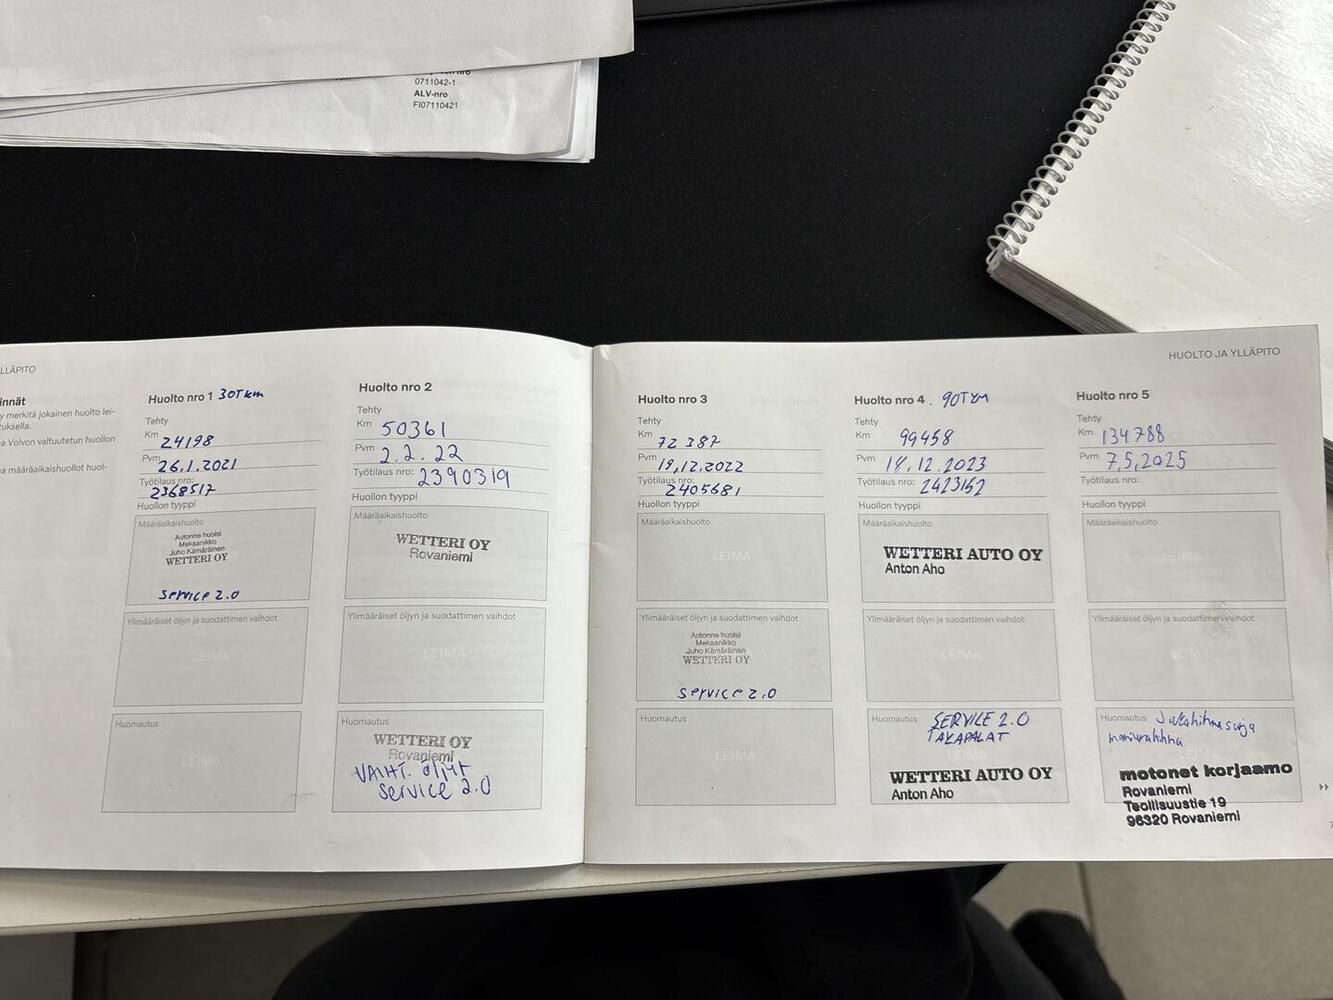 0711042-1
ALV-nro
FI07110421
LLÄPITO
innät
y merkitä jokainen huolto lei-
tuksella.
a Volvon valtuutetun huollon
a määräaikaishuollot huol-
Huolto nro 1 30Tkm
Tehty
Km 24198
Pvm 26.1.2021
Työtilaus nro:
2368517
Huollon tyyppi
Määräaikaishuolto
Autonne huolsi
Mekaanikko
Juho Kämäräinen
WETTERI OY
Service 2.0
Ylimääräiset öljyn ja suodattimen vaihdot
LEIMA
Huomautus
LEIMA
Huolto nro 2
Tehty
Km 50361
Pvm 2.2.22
Työtilaus nro: 2390319
Huollon tyyppi
WETTERI OY
Rovaniemi
Ylimääräiset öljyn ja suodattimen vaihdot
LEIMA
Huomautus
WETTERI OY
Rovaniemi
VAIHT. öljyt
Service 2.0
HUOLTO JA YLLÄPITO
Huolto nro 3
Tehty
Km 72387
Pvm 19.12.2022
Työtilaus nro:
2405681
Huollon tyyppi
Määräaikaishuolto
LEIMA
Ylimääräiset öljyn ja suodattimen vaihdot
Autonne huolsi
Mekaanikko
Juho Kämäräinen
WETTERI OY
Service 2.0
Huomautus
LEIMA
Huolto nro 4. 90TKM
Tehty
Km 99458
Pvm 14.12.2023
Työtilaus nro: 2423152
Huollon tyyppi
Määräaikaishuolto
WETTERI AUTO OY
Anton Aho
Ylimääräiset öljyn ja suodattimen vaihdot
LEIMA
Huomautus SERVICE 2.0
TAKAPALAT
WETTERI AUTO OY
Anton Aho
Huolto nro 5
Tehty
Km 134788
Pvm 7.5.2025
Työtilaus nro:
Huollon tyyppi
Määräaikaishuolto
LEIMA
Ylimääräiset öljyn ja suodattimen vaihdot
LEIMA
Huomautus Jakohihnasarja
moniurahihna
LEIMA
motonet korjaamo
Rovaniemi
Teollisuustie 19
96320 Rovaniemi